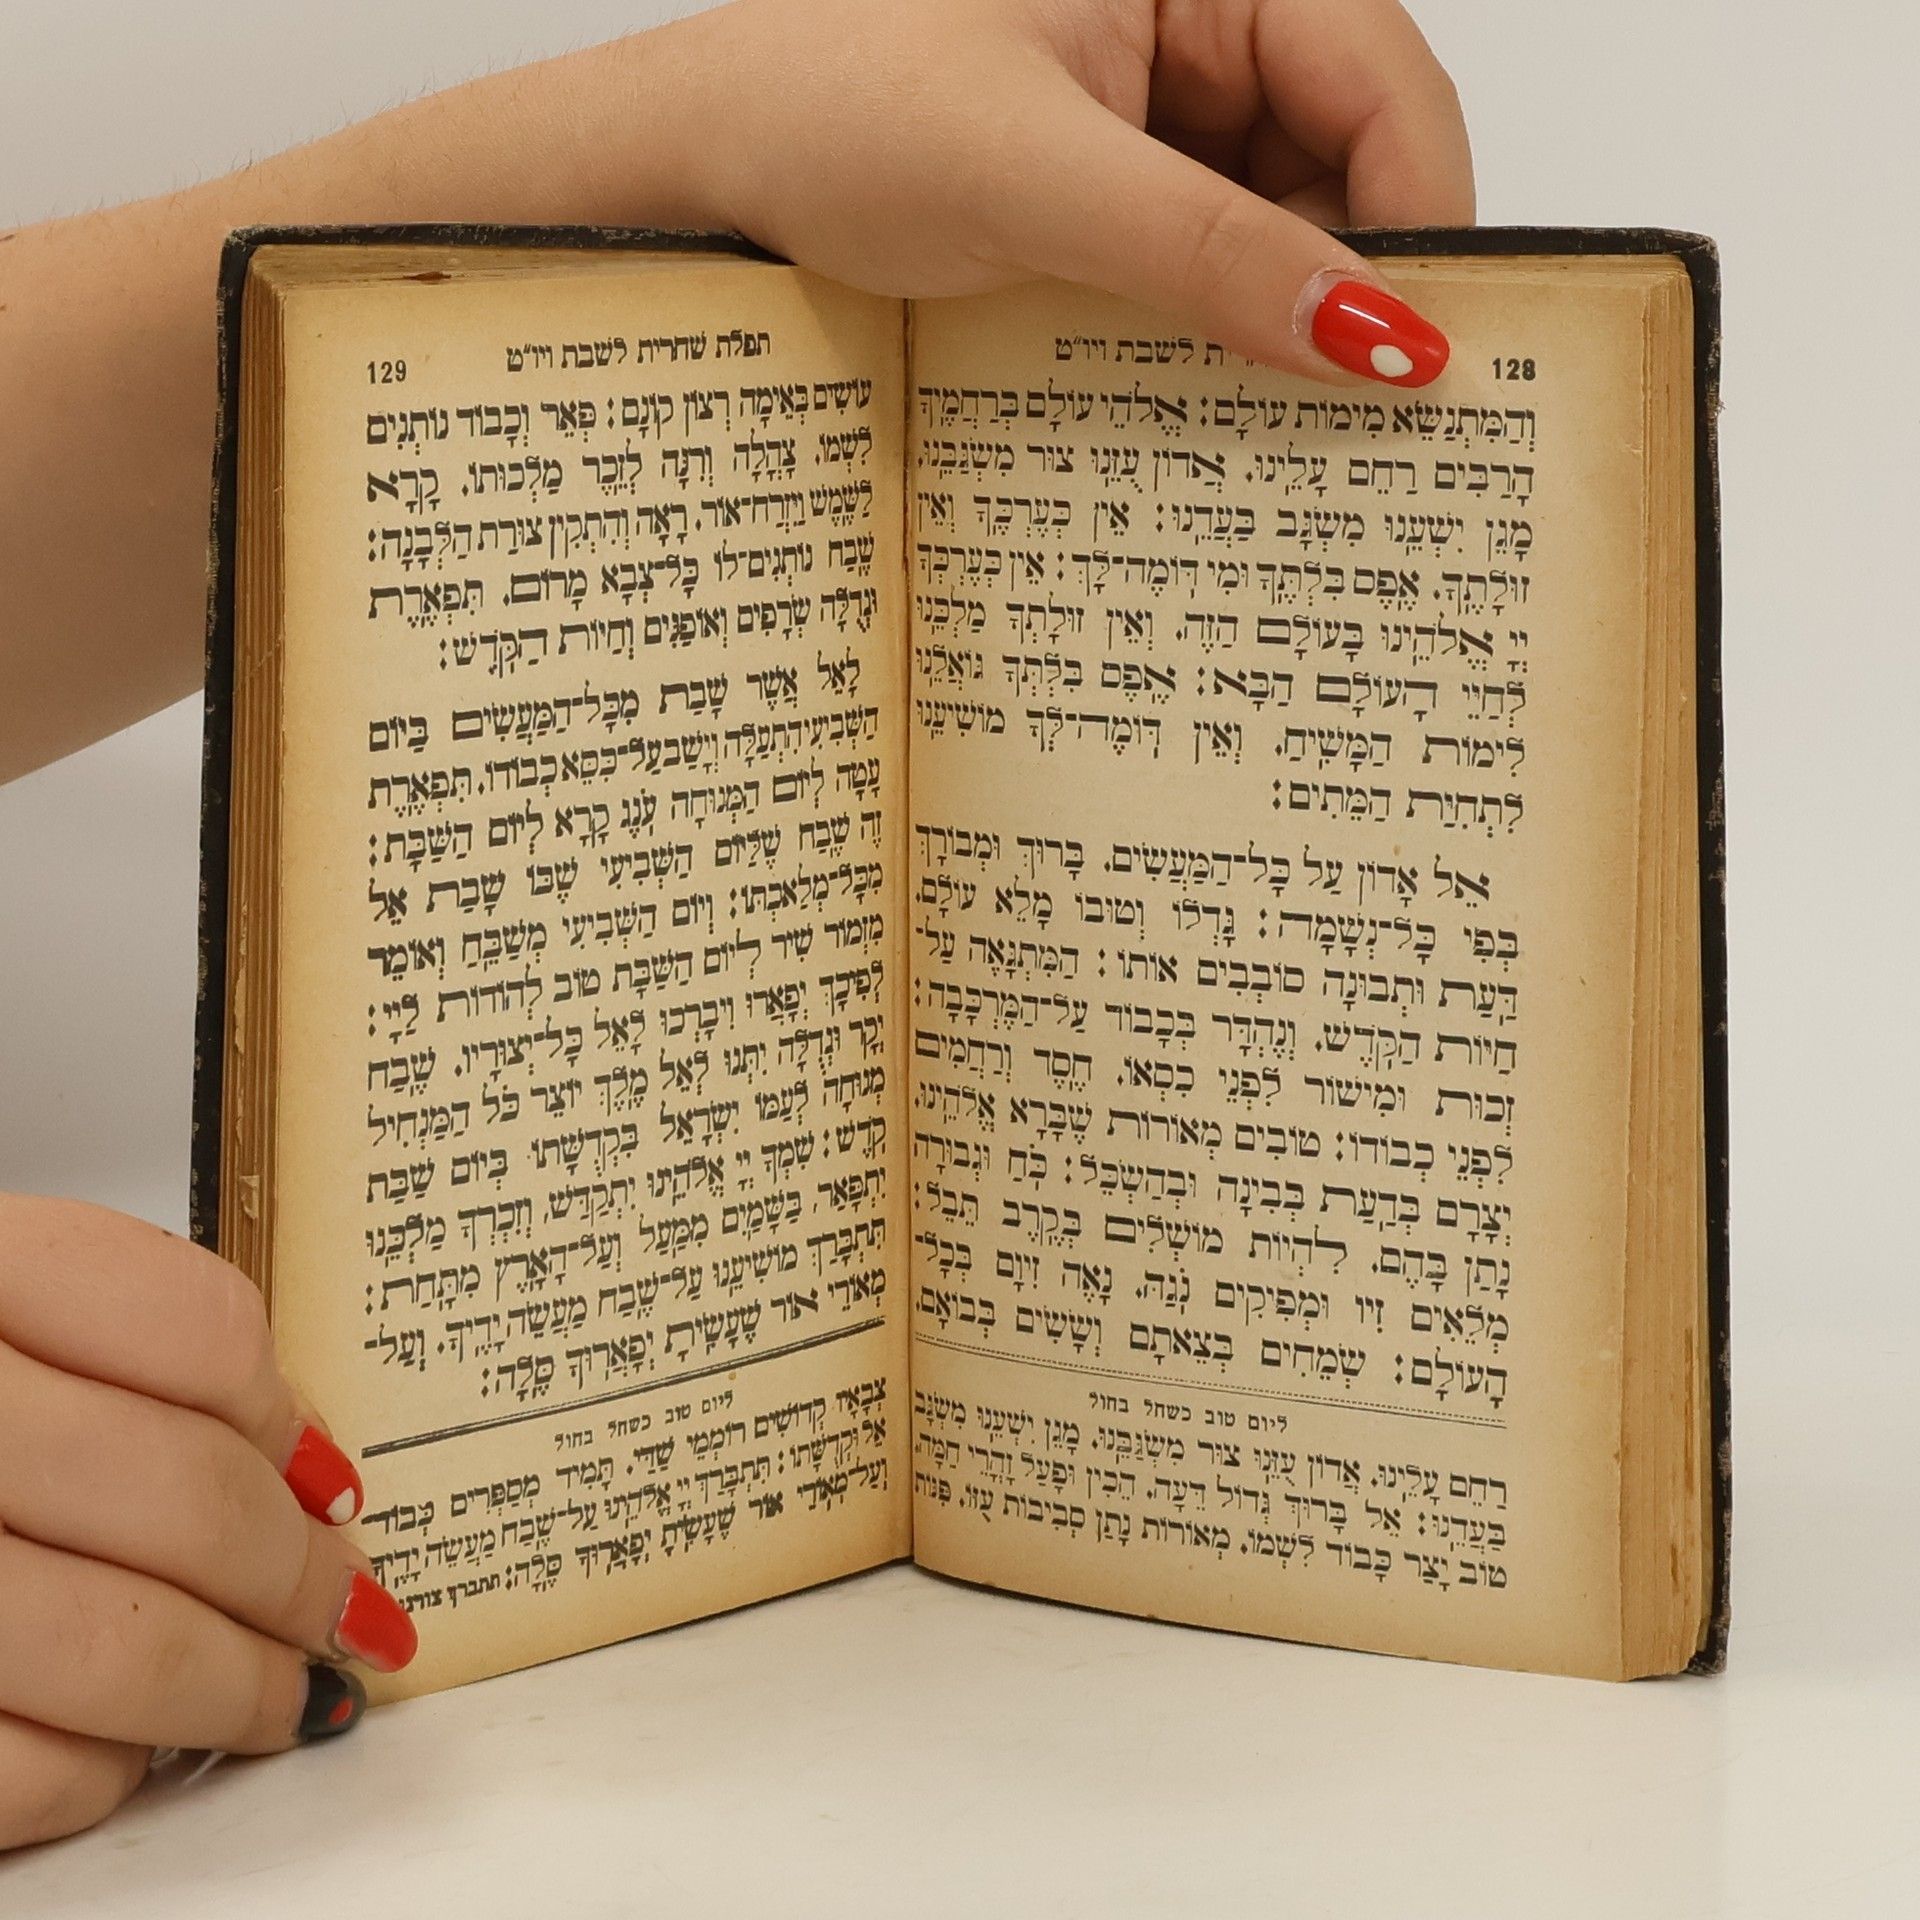 128 לשבת ויו״ט
וְהַמִּתְנַשֵּׂא מִימוֹת עוֹלָם: אֱלֹהֵי עוֹלָם בְּרַחֲמֶיךָ
הָרַבִּים רַחֵם עָלֵינוּ. אֲדוֹן עֻזֵּנוּ צוּר מִשְׂגַּבֵּנוּ.
מָגֵן יִשְׁעֵנוּ מִשְׂגָּב בַּעֲדֵנוּ: אֵין כְּעֶרְכֶּךָ וְאֵין
זוּלָתֶךָ. אֶפֶס בִּלְתֶּךָ וּמִי דּוֹמֶה־לָּךְ: אֵין כְּעֶרְכְּךָ
יְיָ אֱלֹהֵינוּ בָּעוֹלָם הַזֶּה. וְאֵין זוּלָתְךָ מַלְכֵּנוּ
לְחַיֵּי הָעוֹלָם הַבָּא: אֶפֶס בִּלְתְּךָ גּוֹאֲלֵנוּ
לִימוֹת הַמָּשִׁיחַ. וְאֵין דּוֹמֶה־לְּךָ מוֹשִׁיעֵנוּ
לִתְחִיַּת הַמֵּתִים:
אֵל אָדוֹן עַל כָּל־הַמַּעֲשִׂים. בָּרוּךְ וּמְבוֹרָךְ
בְּפִי כָּל־נְשָׁמָה: גָּדְלוֹ וְטוּבוֹ מָלֵא עוֹלָם.
דַּעַת וּתְבוּנָה סוֹבְבִים אוֹתוֹ: הַמִּתְגָּאֶה עַל־
חַיּוֹת הַקֹּדֶשׁ. וְנֶהְדָּר בְּכָבוֹד עַל־הַמֶּרְכָּבָה:
זְכוּת וּמִישׁוֹר לִפְנֵי כִסְאוֹ. חֶסֶד וְרַחֲמִים
לִפְנֵי כְבוֹדוֹ: טוֹבִים מְאוֹרוֹת שֶׁבָּרָא אֱלֹהֵינוּ.
יְצָרָם בְּדַעַת בְּבִינָה וּבְהַשְׂכֵּל: כֹּחַ וּגְבוּרָה
נָתַן בָּהֶם. לִהְיוֹת מוֹשְׁלִים בְּקֶרֶב תֵּבֵל:
מְלֵאִים זִיו וּמְפִיקִים נֹגַהּ. נָאֶה זִיוָם בְּכָל־
הָעוֹלָם: שְׂמֵחִים בְּצֵאתָם וְשָׂשִׂים בְּבוֹאָם.
ליום טוב כשחל בחול
רַחֵם עָלֵינוּ. אֲדוֹן עֻזֵּנוּ צוּר מִשְׂגַּבֵּנוּ. מָגֵן יִשְׁעֵנוּ מִשְׂגָּב
בַּעֲדֵנוּ: אֵל בָּרוּךְ גְּדוֹל דֵּעָה. הֵכִין וּפָעַל זָהֳרֵי חַמָּה.
טוֹב יָצַר כָּבוֹד לִשְׁמוֹ. מְאוֹרוֹת נָתַן סְבִיבוֹת עֻזּוֹ. פִּנּוֹת
תפלת שחרית לשבת ויו״ט 129
עוֹשִׂים בְּאֵימָה רְצוֹן קוֹנָם: פְּאֵר וְכָבוֹד נוֹתְנִים
לִשְׁמוֹ. צָהֳלָה וְרִנָּה לְזֵכֶר מַלְכוּתוֹ. קָרָא
לַשֶּׁמֶשׁ וַיִּזְרַח־אוֹר. רָאָה וְהִתְקִין צוּרַת הַלְּבָנָה:
שֶׁבַח נוֹתְנִים־לוֹ כָּל־צְבָא מָרוֹם. תִּפְאֶרֶת
וּגְדֻלָּה שְׂרָפִים וְאוֹפַנִּים וְחַיּוֹת הַקֹּדֶשׁ:
לָאֵל אֲשֶׁר שָׁבַת מִכָּל־הַמַּעֲשִׂים בַּיּוֹם
הַשְּׁבִיעִי הִתְעַלָּה וְיָשַׁב עַל־כִּסֵּא כְבוֹדוֹ. תִּפְאֶרֶת
עָטָה לְיוֹם הַמְּנוּחָה עֹנֶג קָרָא לְיוֹם הַשַּׁבָּת:
זֶה שֶׁבַח שֶׁלַּיּוֹם הַשְּׁבִיעִי שֶׁבּוֹ שָׁבַת אֵל
מִכָּל־מְלַאכְתּוֹ: וְיוֹם הַשְּׁבִיעִי מְשַׁבֵּחַ וְאוֹמֵר
מִזְמוֹר שִׁיר לְיוֹם הַשַּׁבָּת טוֹב לְהוֹדוֹת לַיְיָ:
לְפִיכָךְ יְפָאֲרוּ וִיבָרְכוּ לָאֵל כָּל־יְצוּרָיו. שֶׁבַח
יְקָר וּגְדֻלָּה יִתְּנוּ לְאֵל מֶלֶךְ יוֹצֵר כֹּל הַמַּנְחִיל
מְנוּחָה לְעַמּוֹ יִשְׂרָאֵל בִּקְדֻשָּׁתוֹ בְּיוֹם שַׁבַּת
קֹדֶשׁ: שִׁמְךָ יְיָ אֱלֹהֵינוּ יִתְקַדַּשׁ, וְזִכְרְךָ מַלְכֵּנוּ
יִתְפָּאַר, בַּשָּׁמַיִם מִמַּעַל וְעַל־הָאָרֶץ מִתָּחַת:
תִּתְבָּרַךְ מוֹשִׁיעֵנוּ עַל־שֶׁבַח מַעֲשֵׂה יָדֶיךָ. וְעַל־
מְאוֹרֵי אוֹר שֶׁעָשִׂיתָ יְפָאֲרוּךָ סֶּלָה:
ליום טוב כשחל בחול
צְבָאָיו קְדוֹשִׁים רוֹמְמֵי שַׁדַּי. תָּמִיד מְסַפְּרִים כְּבוֹד
אֵל וּקְדֻשָּׁתוֹ: תִּתְבָּרַךְ יְיָ אֱלֹהֵינוּ עַל־שֶׁבַח מַעֲשֵׂה יָדֶיךָ
וְעַל־מְאוֹרֵי אוֹר שֶׁעָשִׂיתָ יְפָאֲרוּךָ סֶּלָה: תתברך צורנו